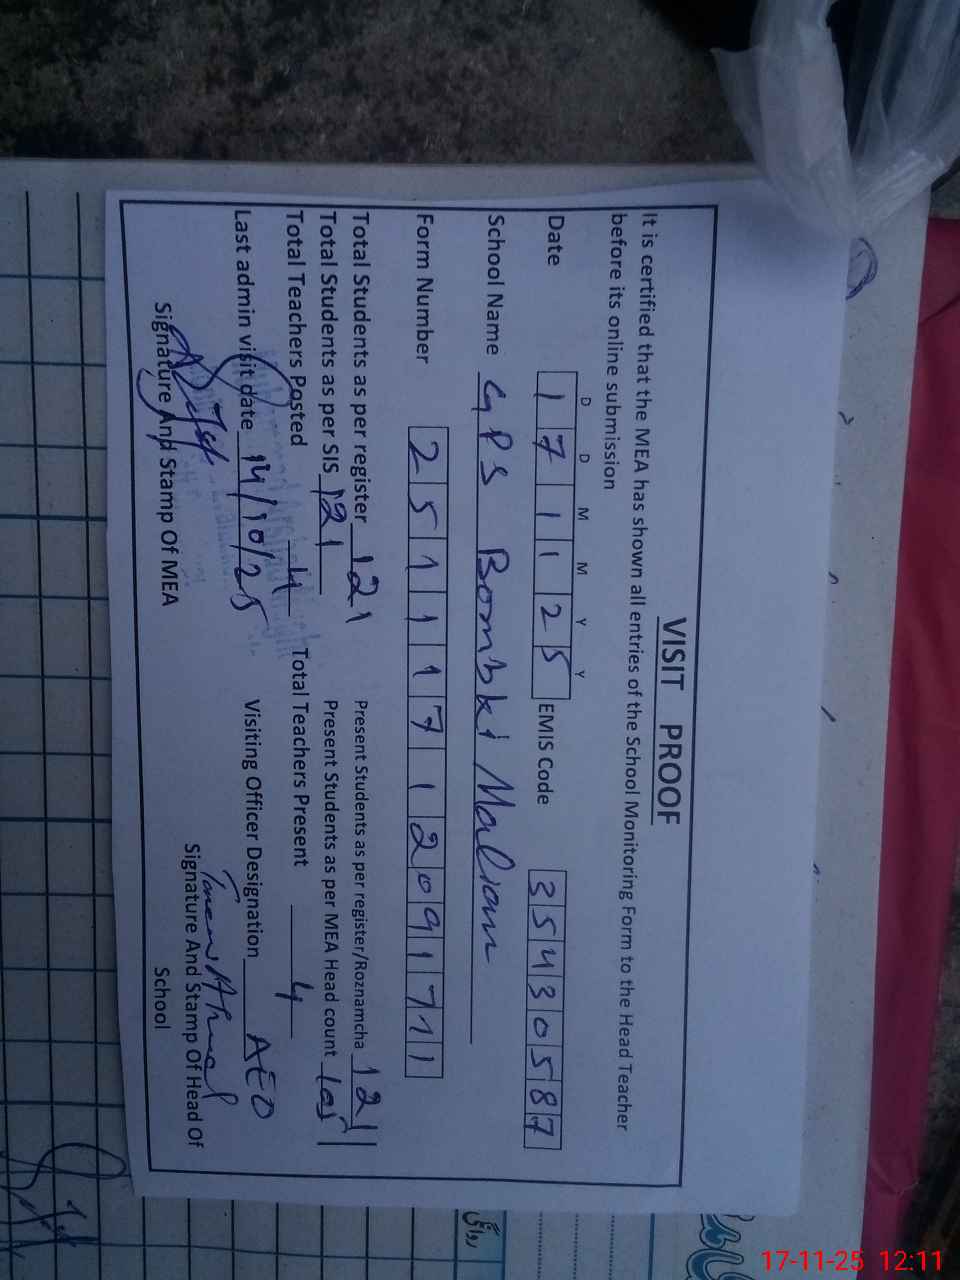 VISIT PROOF
It is certified that the MEA has shown all entries of the School Monitoring Form to the Head Teacher
before its online submission
D D M M Y Y
Date 1 7 1 1 2 5 EMIS Code 3 5 4 3 0 5 8 7
School Name GPS Bombki Malian
Form Number 2 5 1 1 1 7 1 2 0 9 1 7 1 1
Total Students as per register 121 Present Students as per register/Roznamcha 121
Total Students as per SIS 121 Present Students as per MEA Head count 105
Total Teachers Posted 4 Total Teachers Present 4
Last admin visit date 14/10/25 Visiting Officer Designation AEO
Signature And Stamp Of MEA Signature And Stamp Of Head Of
School
روانگی
17-11-25 12:11